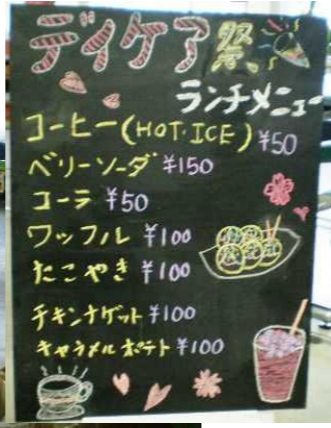 デイケア祭
ランチメニュー
コーヒー(HOT・ICE) ¥50
ベリーソーダ ¥150
コーラ ¥50
ワッフル ¥100
たこやき ¥100
チキンナゲット ¥100
キャラメルポテト ¥100